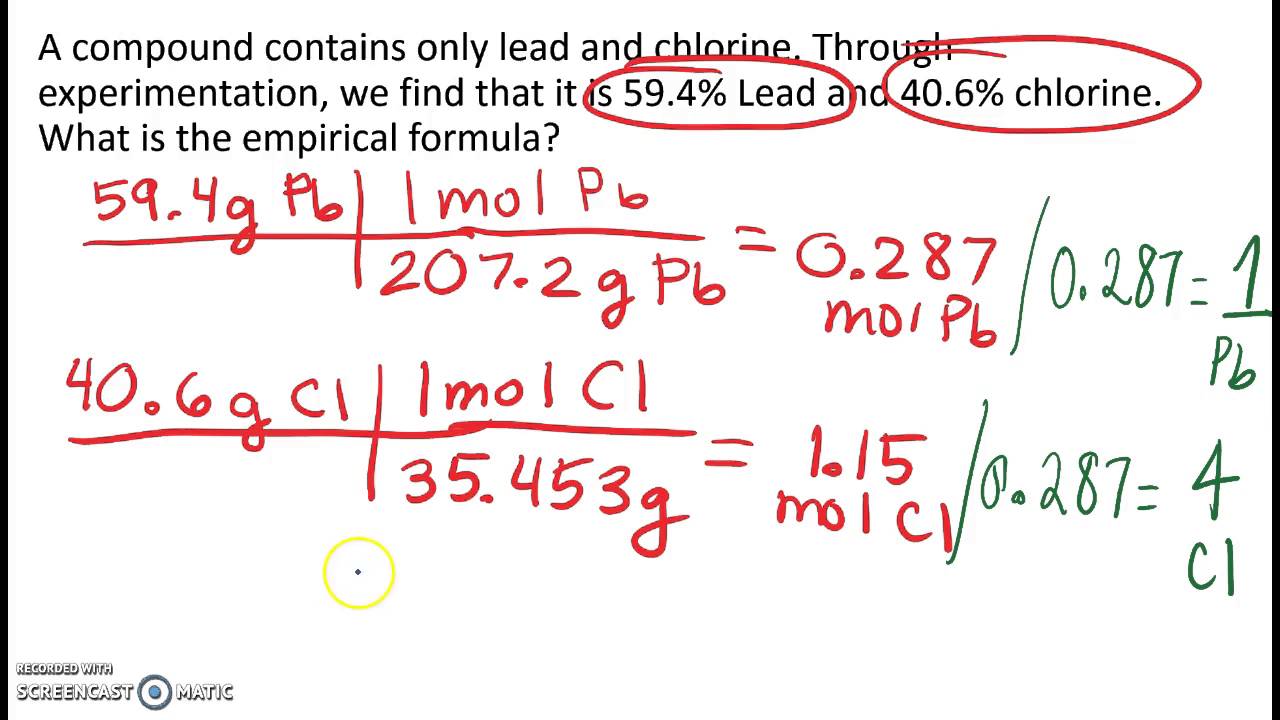 A compound contains only lead and chlorine. Through
experimentation, we find that it is 59.4% Lead and 40.6% chlorine.
What is the empirical formula?
59.4g Pb | 1 mol Pb
207.2 g Pb
= 0.287 mol Pb / 0.287 = 1 Pb
40.6 g Cl | 1 mol Cl
35.453g
= 1.15 mol Cl / 0.287 = 4 Cl
RECORDED WITH
SCREENCAST MATIC